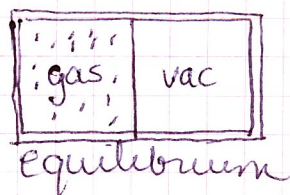 gas vac
equilibrium